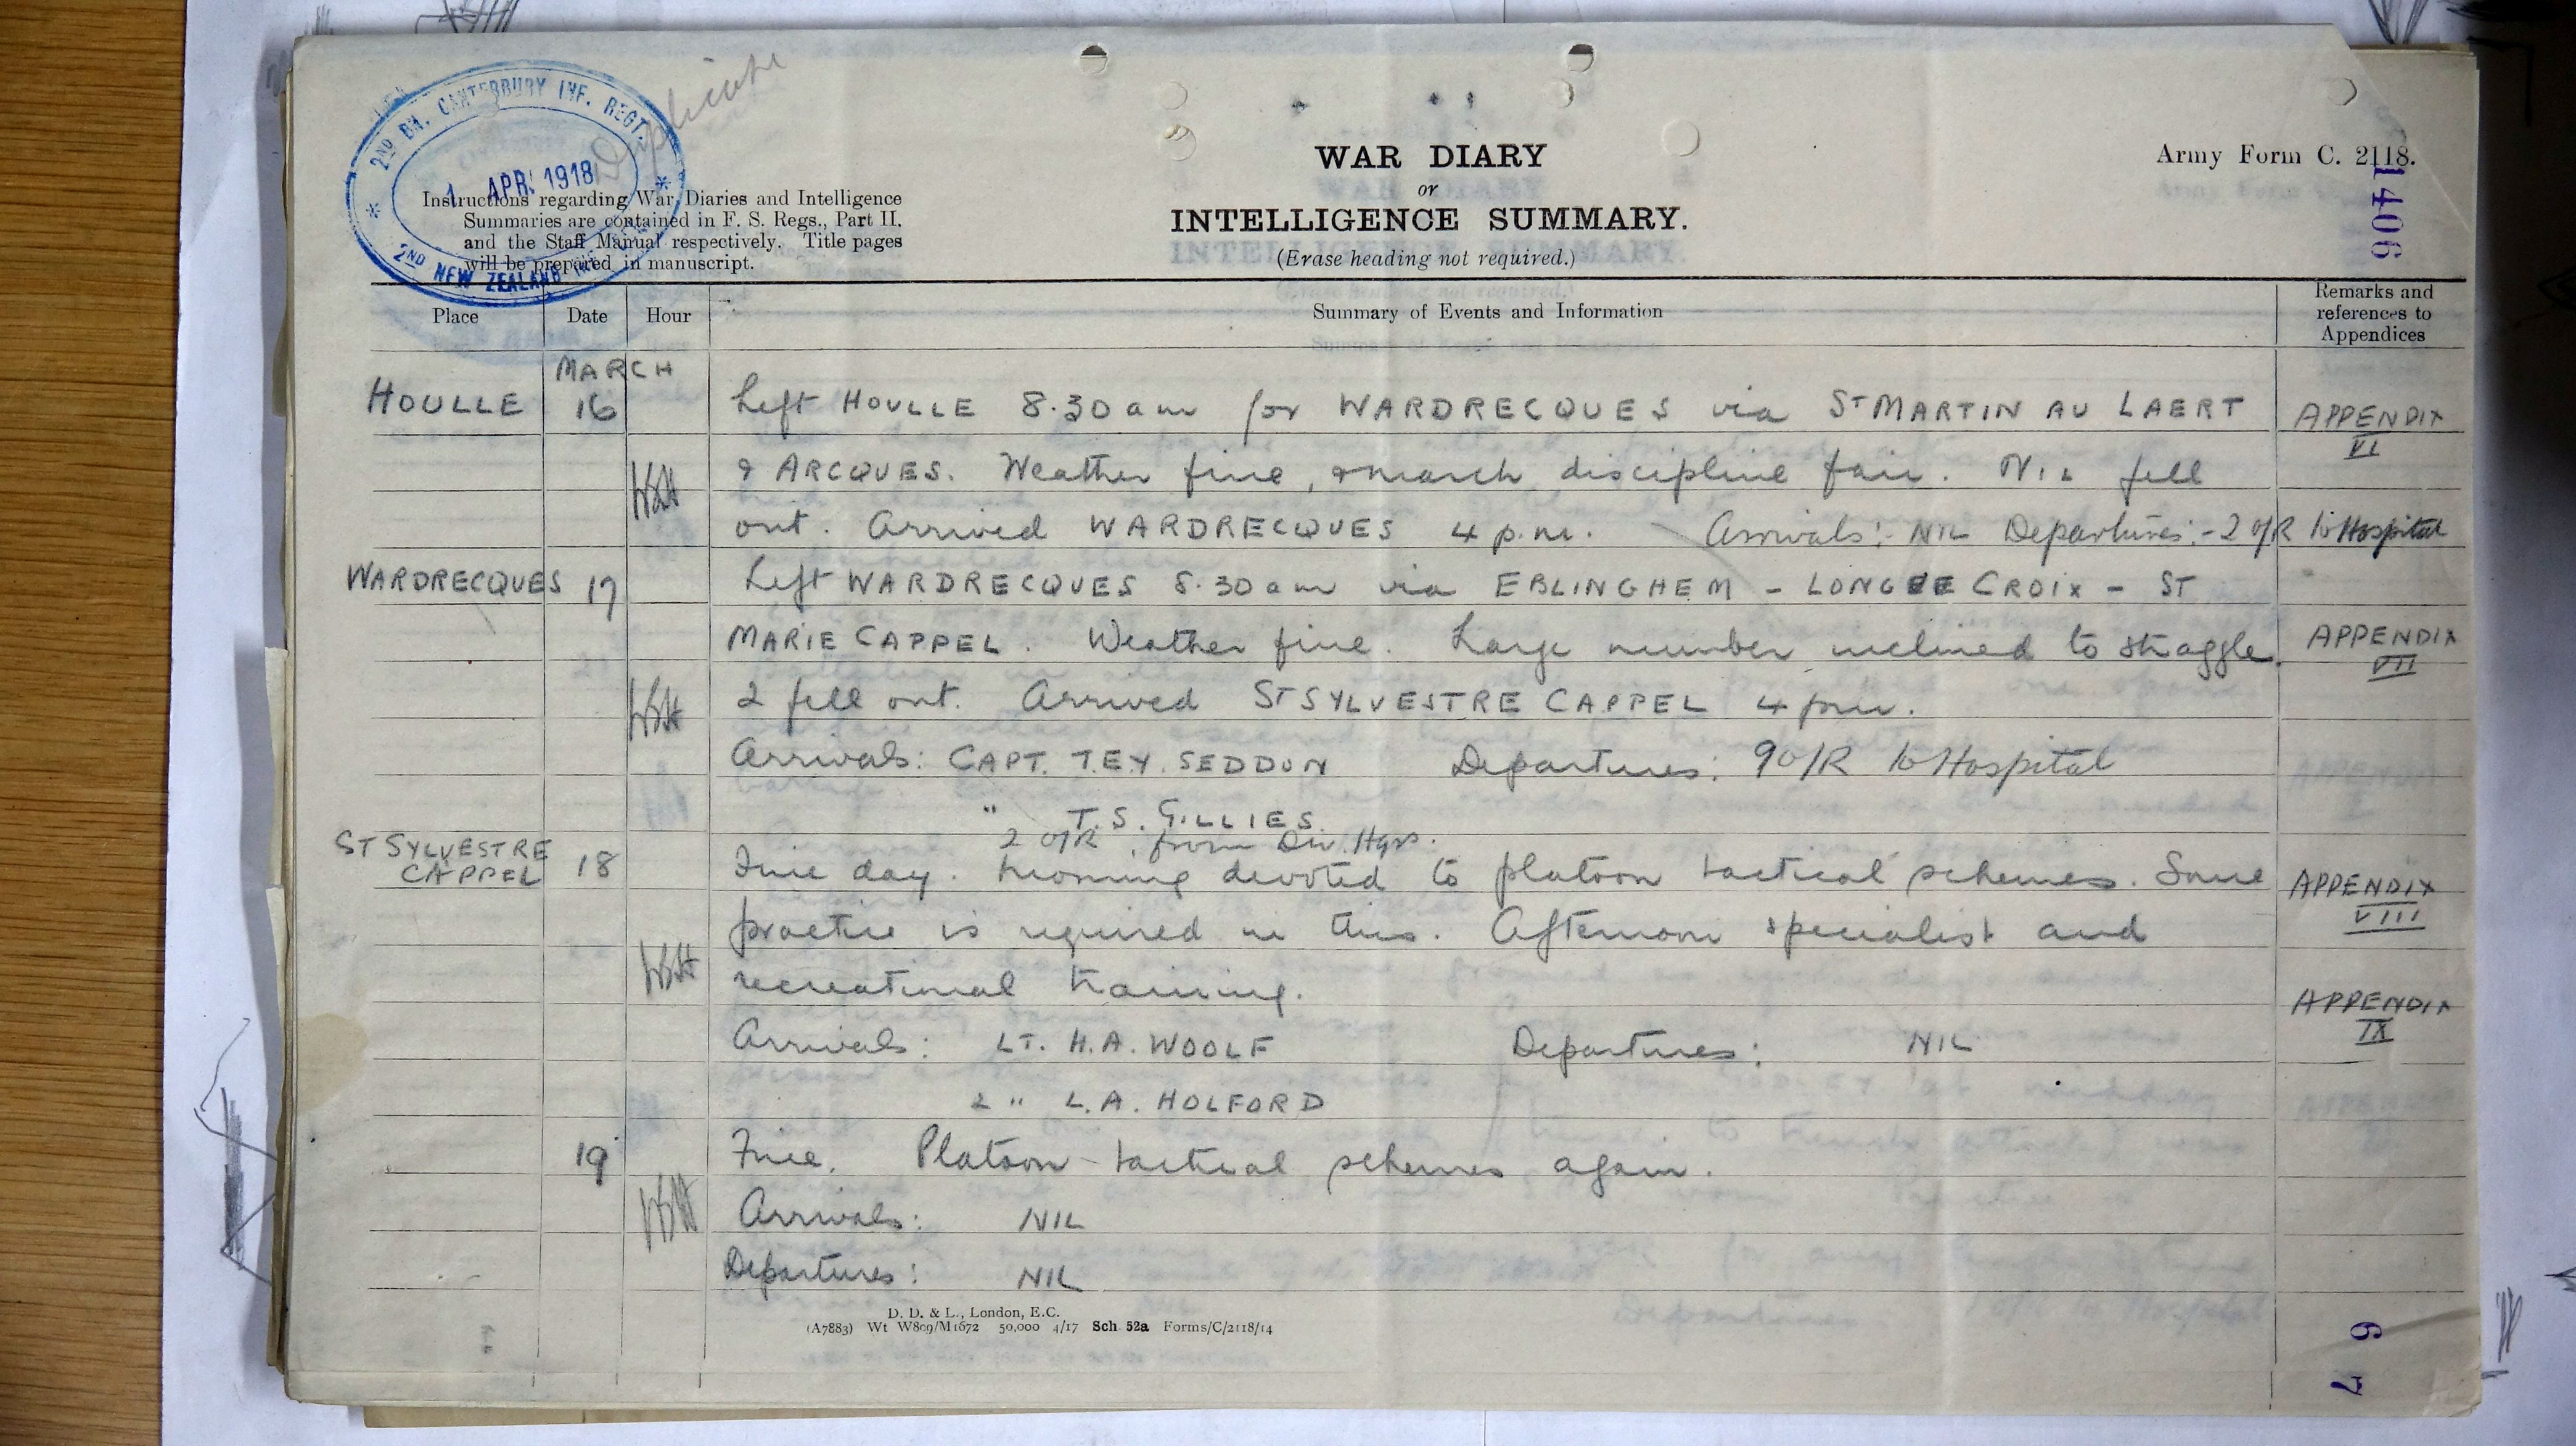 Duplicate
2ND BN. CANTERBURY INF. REGT.
1 APR. 1918
2ND NEW ZEALAND INF.
Instructions regarding War Diaries and Intelligence
Summaries are contained in F. S. Regs., Part II.
and the Staff Manual respectively. Title pages
will be prepared in manuscript.
WAR DIARY
or
INTELLIGENCE SUMMARY.
(Erase heading not required.)
Army Form C. 2118.
1406
Place Date Hour Summary of Events and Information Remarks and
references to
Appendices
MARCH
HOULLE 16 Left HOULLE 8.30 am for WARDRECQUES via ST MARTIN AU LAERT APPENDIX
VI
& ARCQUES. Weather fine, & march discipline fair. NIL fell
out. Arrived WARDRECQUES 4 p.m. Arrivals:- NIL Departures:- 2 O/R to Hospital
WARDRECQUES 17 Left WARDRECQUES 8.30 am via EBLINGHEM - LONGUE CROIX - ST
MARIE CAPPEL. Weather fine. Large number inclined to straggle. APPENDIX
VII
2 fell out. Arrived ST SYLVESTRE CAPPEL 4 pm.
Arrivals: CAPT. T.E.Y. SEDDON Departures: 9 O/R to Hospital
" T.S. GILLIES
2 O/R from Div. Hqrs.
ST SYLVESTRE
CAPPEL 18 Fine day. Morning devoted to platoon tactical schemes. Some APPENDIX
VIII
practice is required in this. Afternoon specialist and
recreational training.
APPENDIX
IX
Arrivals: LT. H.A. WOOLF Departures: NIL
2 " L.A. HOLFORD
19 Fine. Platoon tactical schemes again.
Arrivals: NIL
Departures: NIL
D. D. & L., London, E.C.
(A7883) Wt W809/M1672 50,000 4/17 Sch 52a Forms/C/2118/14
67